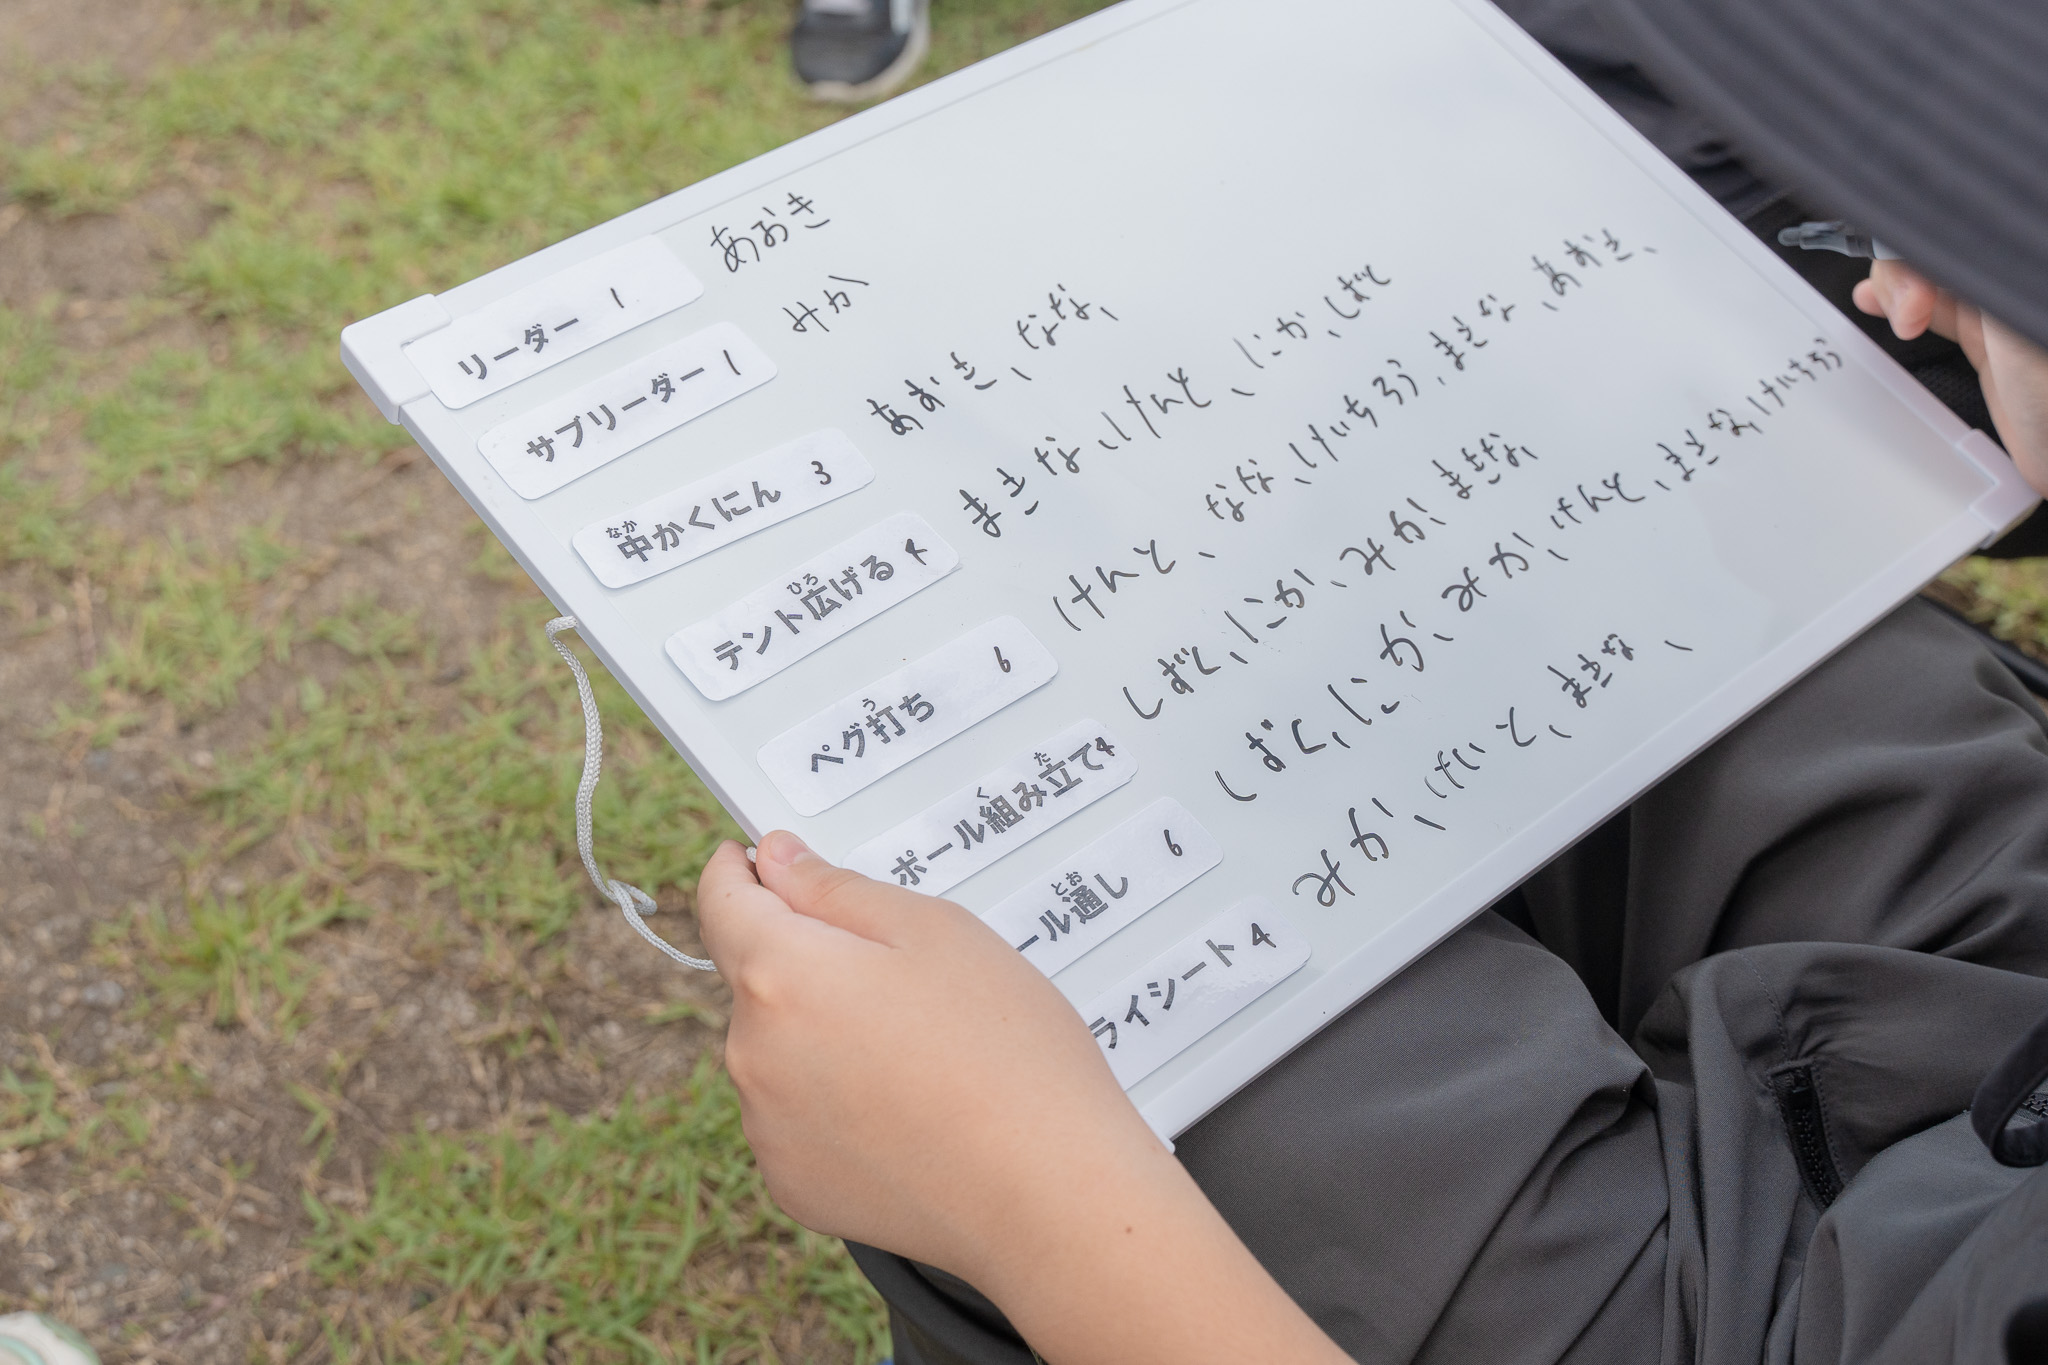 リーダー 1 あおき
サブリーダー 1 みか
中かくにん 3 あおき、なな、
なか
テント広げる 4 まきな、けんと、にか、しずく
ひろ
ペグ打ち 6 けんと、なな、けいちろう、まきな、あおき、
う
ポール組み立て4 しずく、にか、みか、まきな、
く た
ール通し 6 しずく、にか、みか、けんと、まきな、けいちろう
とお
ライシート 4 みか、けいと、まきな、